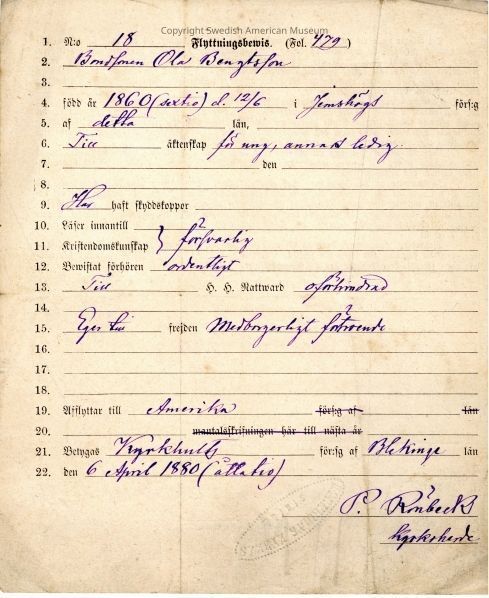 Copyright Swedish American Museum
1. N:o 18 Flyttningsbewis. (Fol. 479)
2. Bondsonen Ola Bengtsson
3.
4. född år 1860 (sextio) d. 12/6 i Jemshögs förs:g
5. af detta län,
6. Till äktenskap för ung, annars ledig.
7. den
8.
9. Har haft skyddskoppor
10. Läser innantill
11. Kristendomskunskap } försvarlig
12. Bewistat förhören ordentligt
13. Till H. H. Nattward oförhindrad
14.
15. Eger till frejden Medborgerligt förtroende
16.
17.
18.
19. Afflyttar till Amerika förs:g af län
20. mantalsskrifningen här till nästa år
21. Betygas Kyrkhults förs:g af Blekinge län
22. den 6 April 1880 (åttatio)
P. Rönbeck
Kyrkoherde